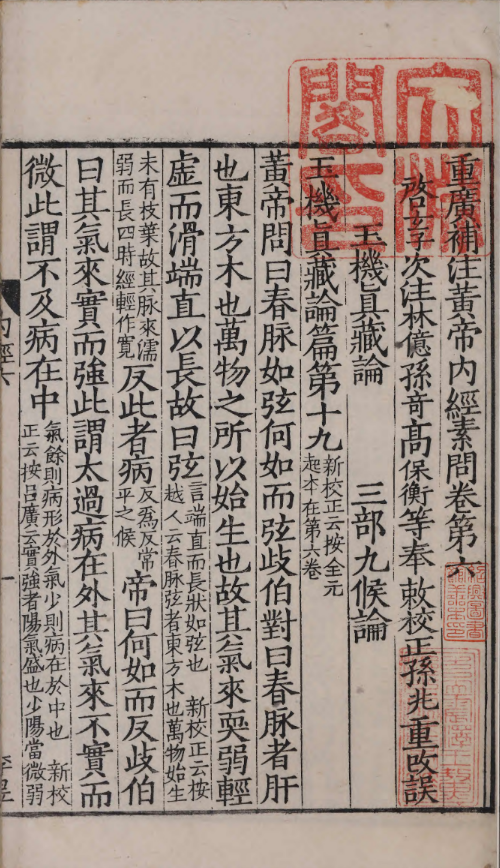 重廣補注黃帝內經素問卷第六
啓玄子次注林億孫奇髙保衡等奉敕校正孫兆重改誤
玉機眞藏論 三部九候論
玉機眞藏論篇第十九
新校正云按全元
起本在第六卷
黃帝問曰春脉如弦何如而弦歧伯對曰春脉者肝
也東方木也萬物之所以始生也故其氣來耎弱輕
虛而滑端直以長故曰弦
言端直而長狀如弦也 新校正云按
越人云春脉弦者東方木也萬物始生
未有枝葉故其脉來濡
弱而長四時經輕作寛
反此者病
反爲反常
平之候
帝曰何如而反歧伯
曰其氣來實而強此謂太過病在外其氣來不實而
微此謂不及病在中
氣餘則病形於外氣少則病在於中也 新校
正云按呂廣云實強者陽氣盛也少陽當微弱
內經六
一